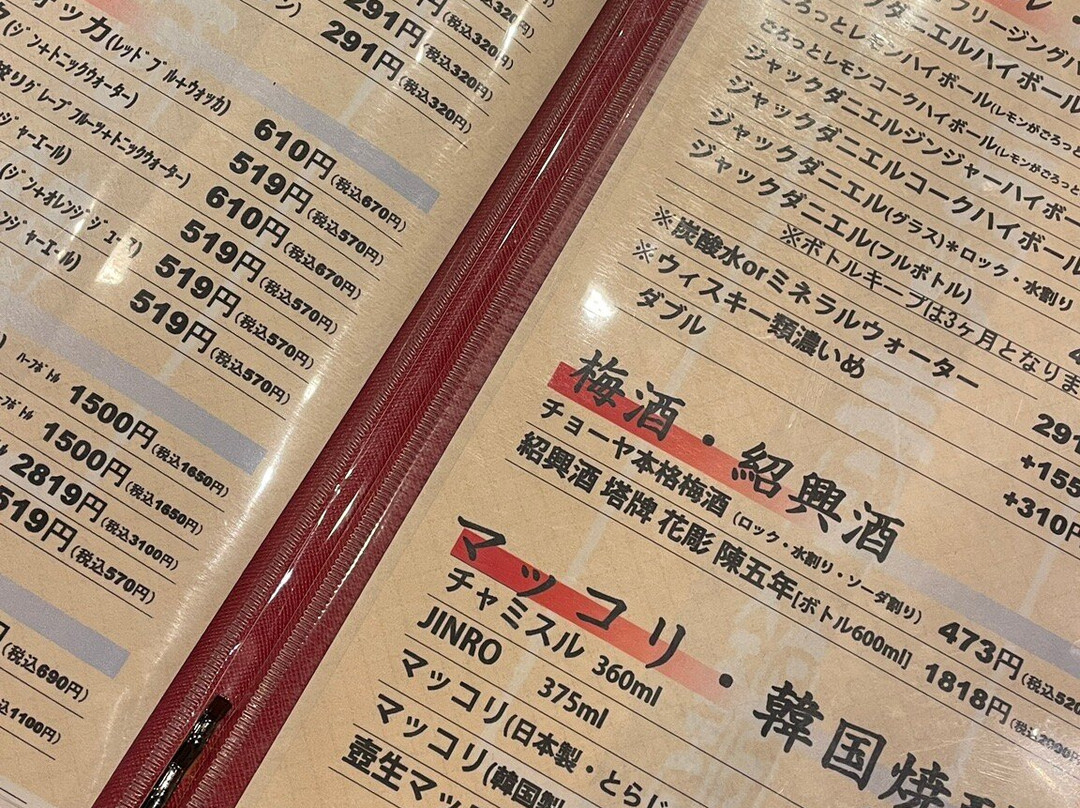 291円(税込320円)
291円(税込320円)
(レッドブル+ウォッカ)
(ジン+トニックウォーター)
610円(税込670円)
519円(税込570円)
610円(税込670円)
519円(税込570円)
519円(税込570円)
519円(税込570円)
ﾊｰﾌﾎﾞﾄﾙ 1500円(税込1650円)
1500円(税込1650円)
2819円(税込3100円)
519円(税込570円)
(税込690円)
1100円)
ごろっとレモンハイボール(レモンがごろっと
ごろっとレモンコークハイボール(レモンがごろっと
ジャックダニエルジンジャーハイボー
ジャックダニエルコークハイボール
ジャックダニエル(グラス)*ロック・水割り
ジャックダニエル(フルボトル)
※ボトルキープは3ヶ月となりま
※炭酸水orミネラルウォーター 291
※ウィスキー類濃いめ +155
ダブル +310円
梅酒・紹興酒
チョーヤ本格梅酒(ロック・水割り・ソーダ割り) 473円(税込520
紹興酒 塔牌 花彫 陳五年[ボトル600ml] 1818円
マッコリ・韓国焼
チャミスル 360ml
JINRO 375ml
マッコリ(日本製・とらじ
マッコリ(韓国製
壺生マッ